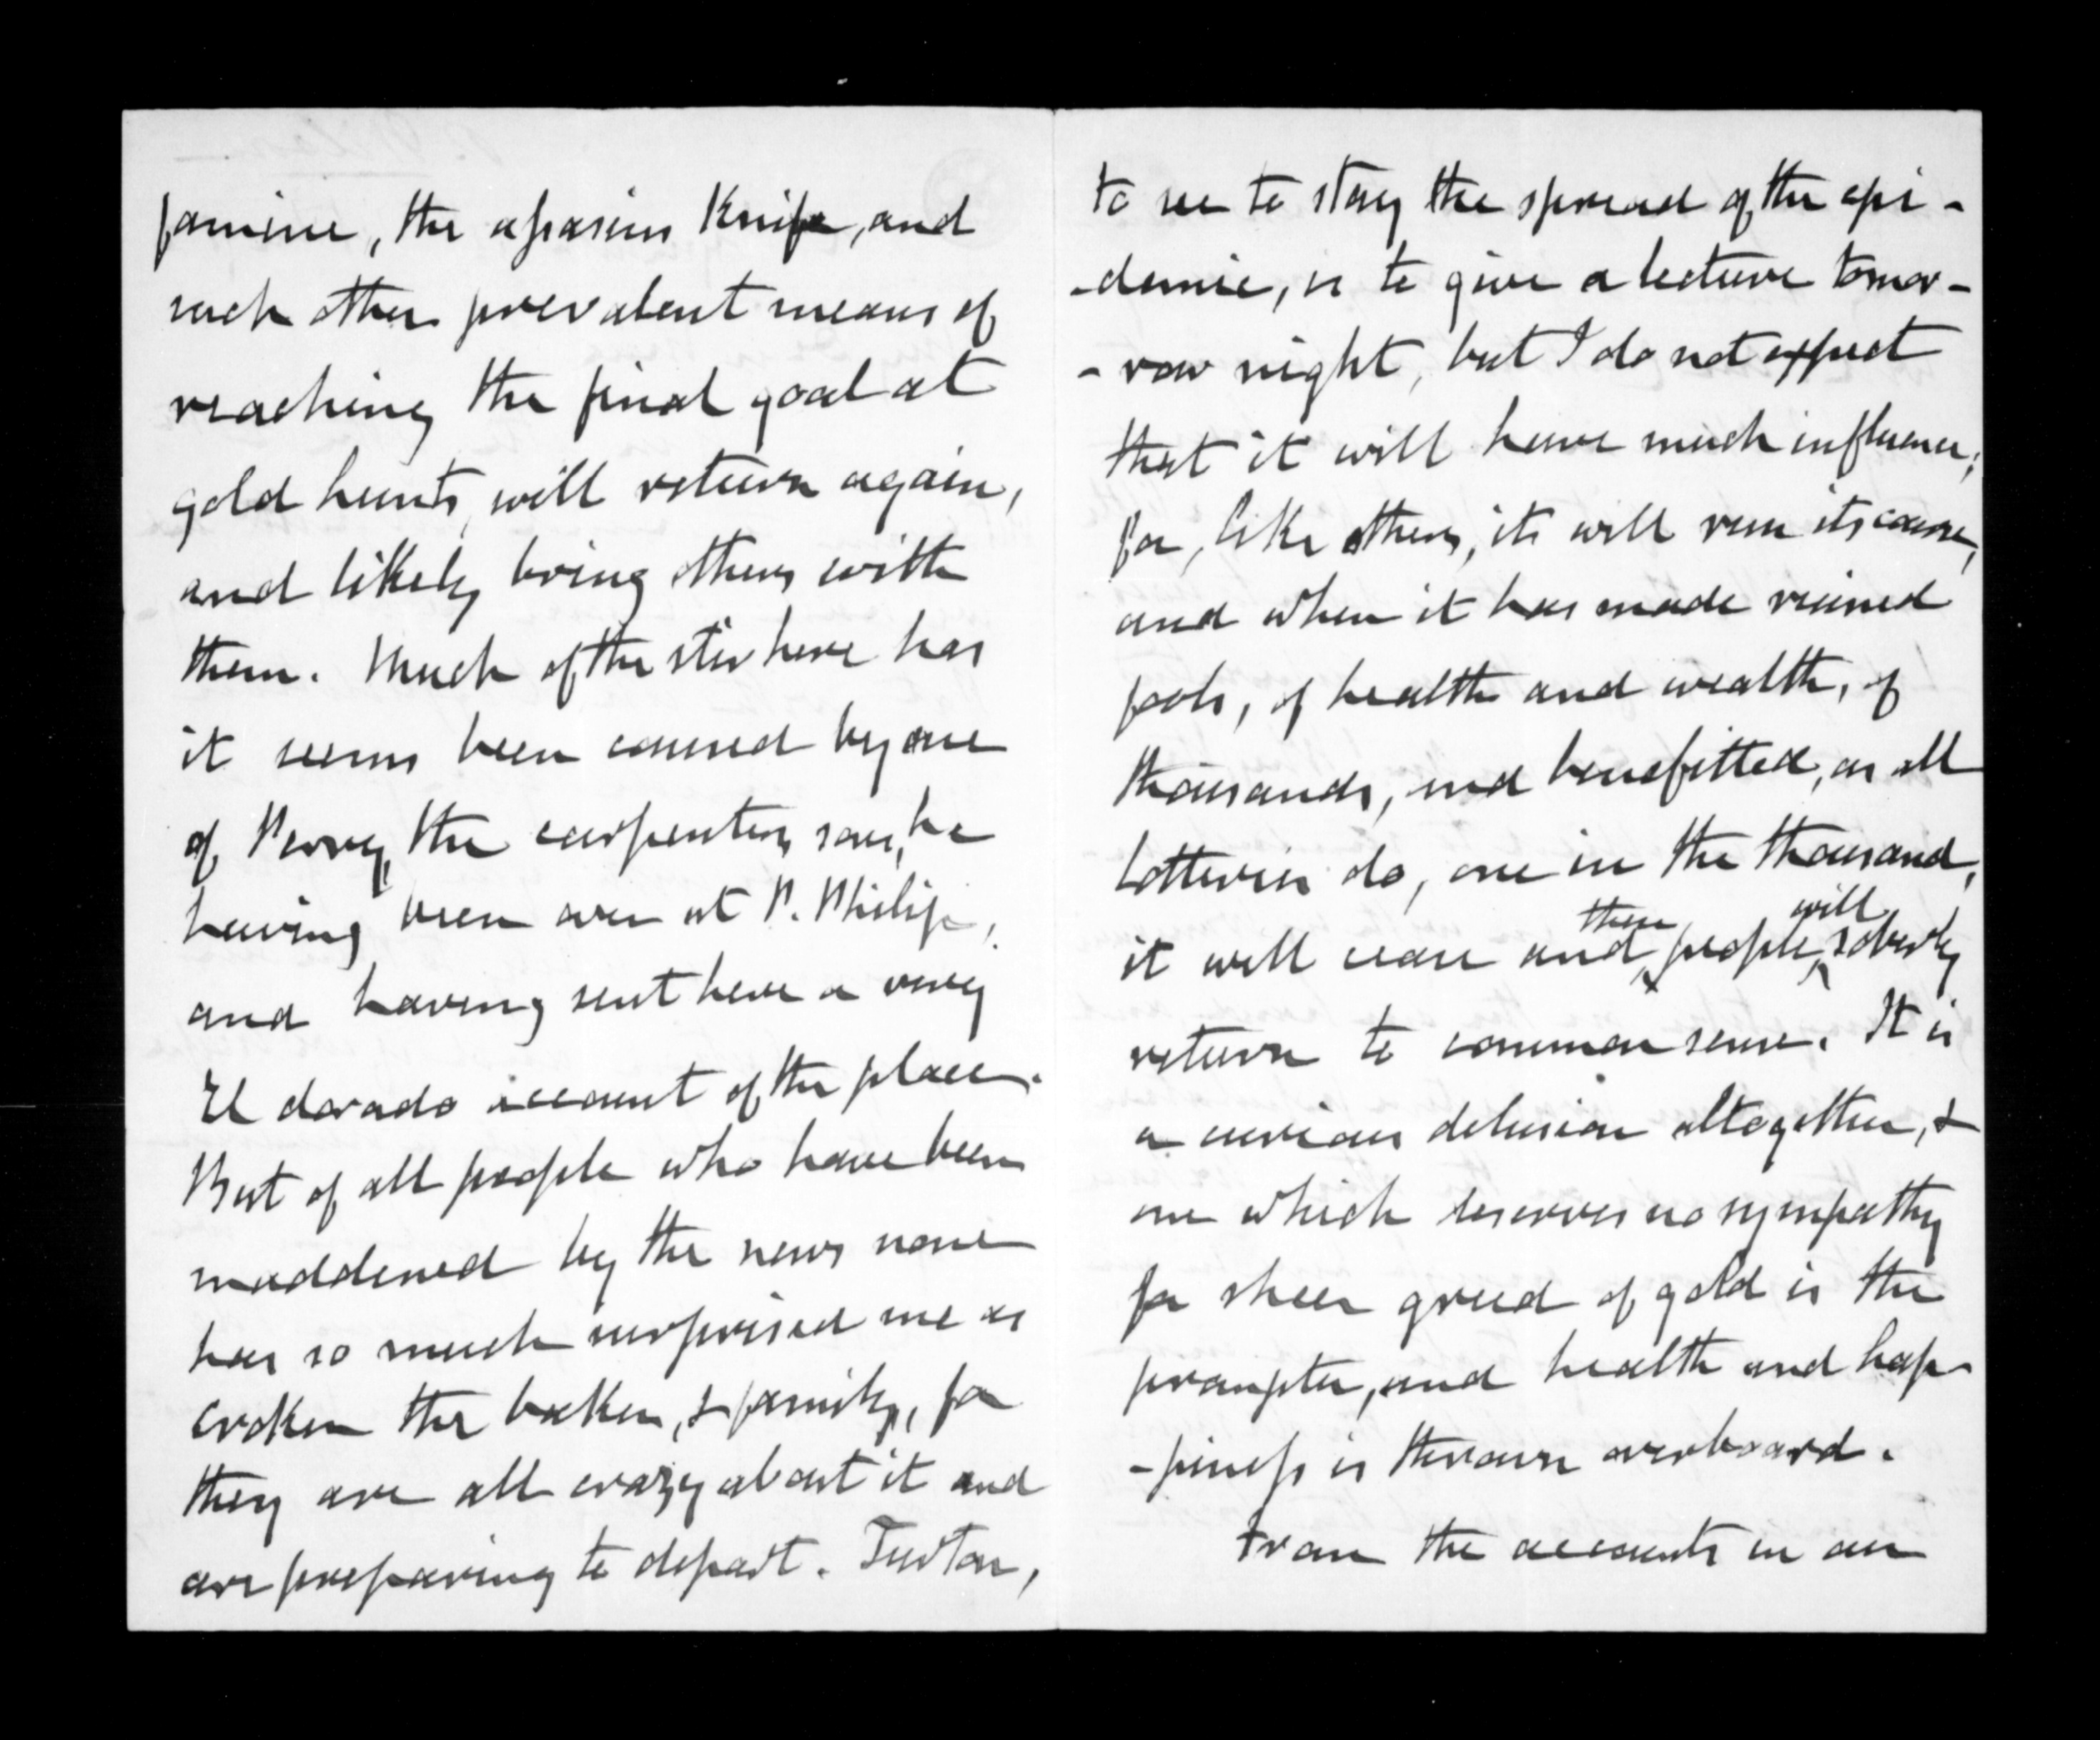 famine, the assassins Knife, and
such other prevalent means of
reaching the final goal at
gold hunts, will return again,
and likely bring others with
them. Much of the stir here has
it seems been caused by one
of Perry, the carpenters, sons, he
having been over at P. Philip,
and having sent here a very
El dorado account of the place.
But of all people who have been
maddened by the news none
has so much surprised me as
Croker the baker, & family, for
they are all crazy about it and
are preparing to depart. Turton,
to see to stay the spread of the epi-
-demic, is to give a lecture tomor-
-row night, but I do not expect
that it will have much influence;
for, like others, its will run its course,
and when it has made ruined
fools, of health and wealth, of
thousands, and benefitted, as all
Lotteries do, one in the thousand,
it will cease and then people, will soberly
return to common sense. It is
a curious delusion altogether, &
one which deserves no sympathy
for sheer greed of gold is the
prompter, and health and hap-
-piness is thrown overboard.
From the accounts in our